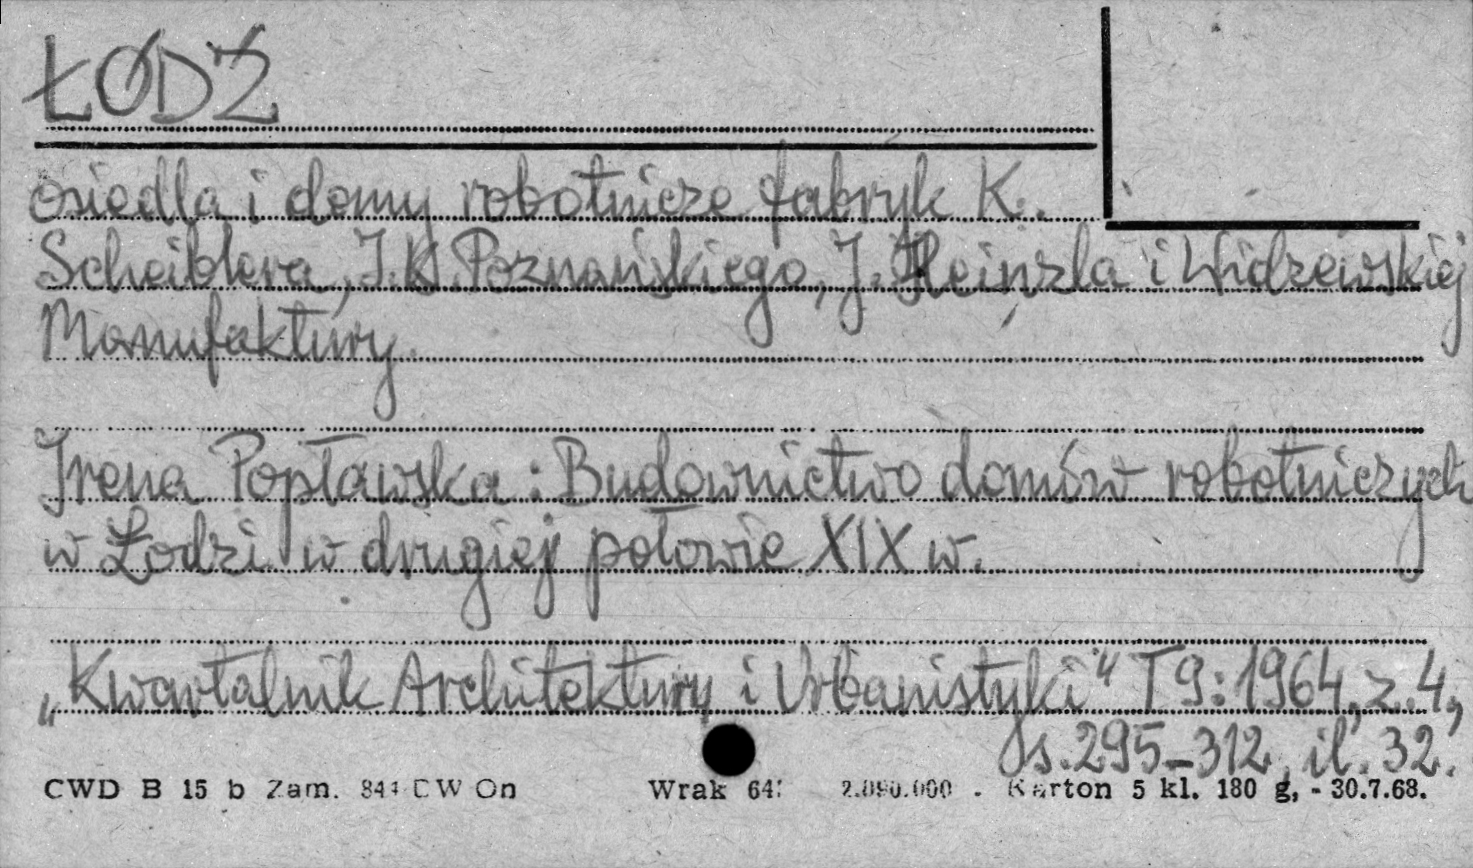 ŁÓDŹ
osiedla i domy robotnicze fabryk K.
Scheiblera, I.K. Poznańskiego, J. Heinzla i Widzewskiej
Manufaktury.
Irena Popławska: Budownictwo domów robotniczych
w Łodzi w drugiej połowie XIX w.
„Kwartalnik Architektury i Urbanistyki" T 9: 1964, z. 4,
s. 295-312, il. 32.
CWD B 15 b Zam. DW On Wrak 2.090.000 - Karton 5 kl. 180 g, - 30.7.68.